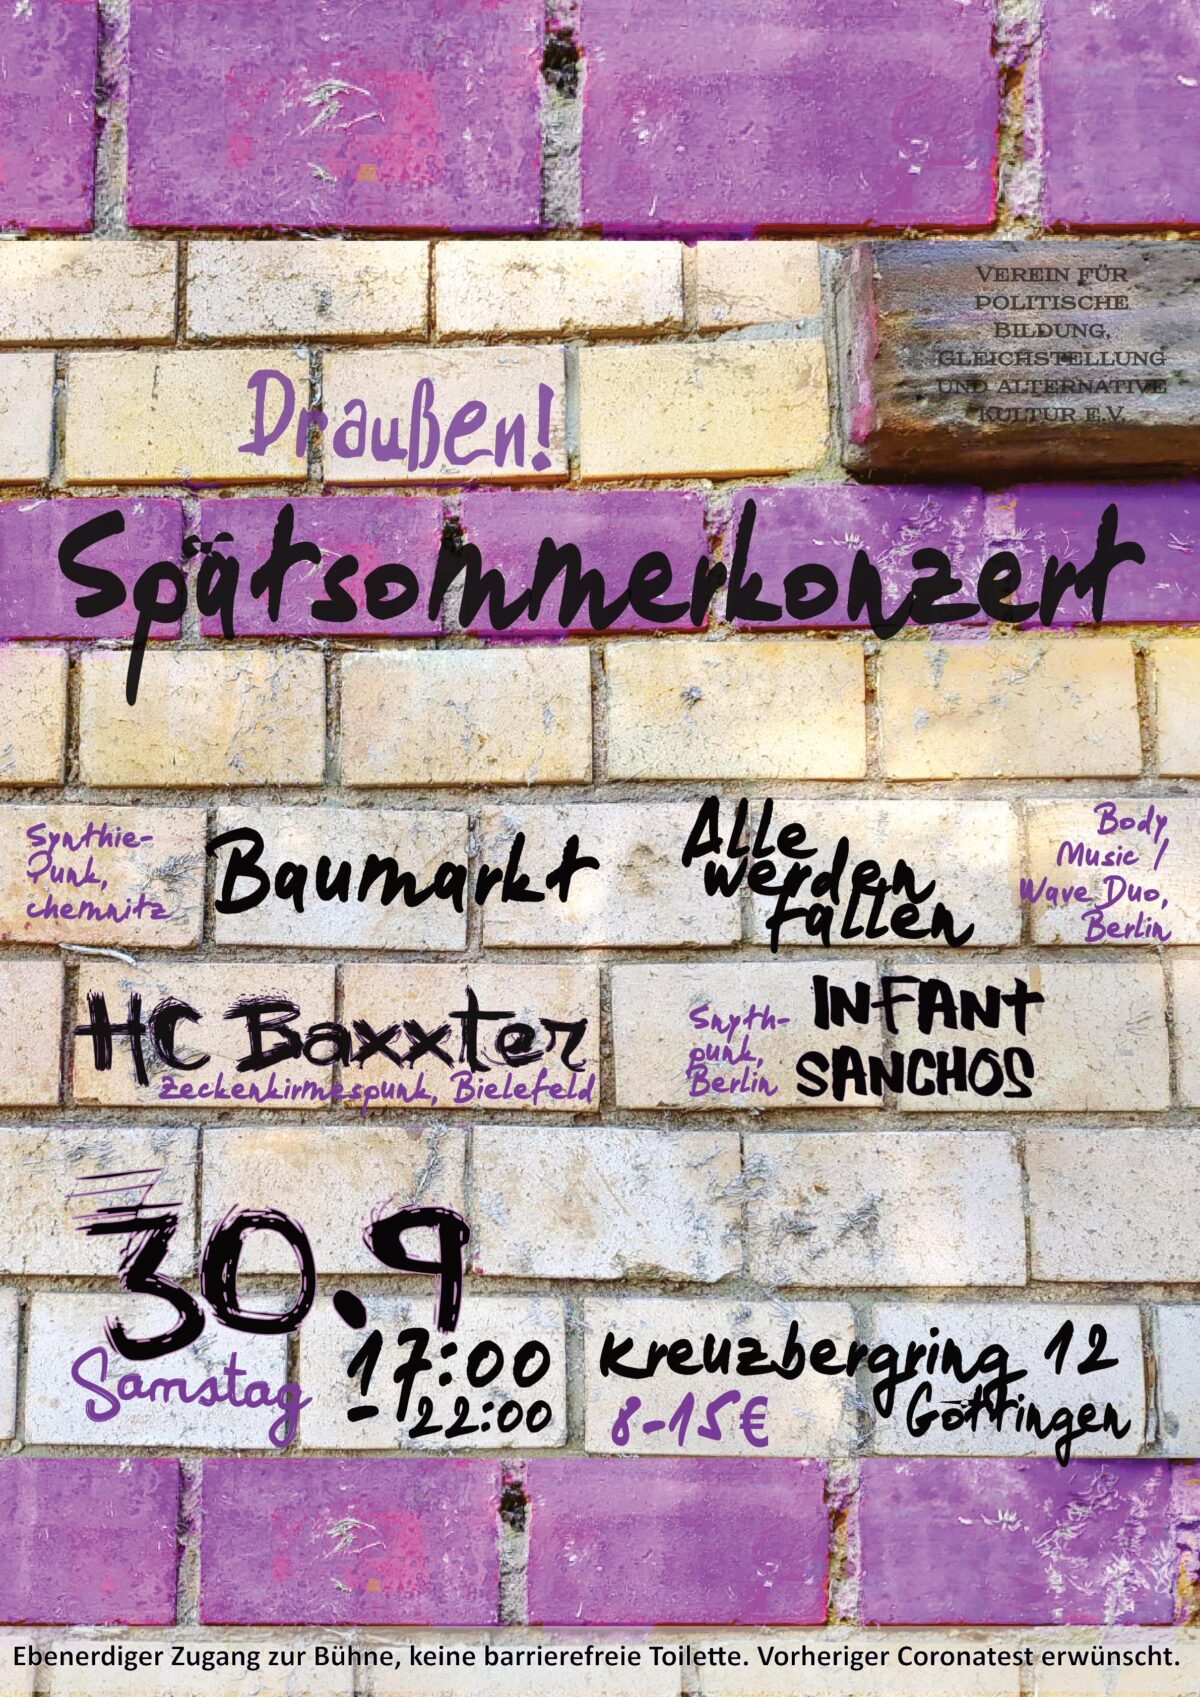 Verein für
politische
Bildung,
Gleichstellung
und alternative
Kultur e.V.
Draußen!
Spätsommerkonzert
Synthie-
Punk,
chemnitz
Baumarkt
Alle
werden
fallen
Body
Music /
Wave Duo,
Berlin
HC Baxxter
Zeckenkirmespunk, Bielefeld
Snyth-
punk,
Berlin
INFANT
SANCHOS
30.9
Samstag
17:00
- 22:00
Kreuzbergring 12
Göttingen
8-15€
Ebenerdiger Zugang zur Bühne, keine barrierefreie Toilette. Vorheriger Coronatest erwünscht.